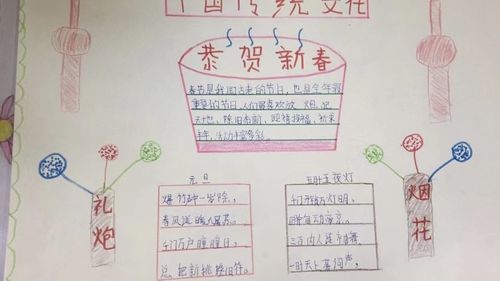 中国传统文化
恭贺新春
春节是我国古老的节日，也是全年最
重要的节日，人们最喜欢放
炮
除旧布新、迎禧接福、祈求
丰年
元旦
爆竹声中一岁除，
春风送暖入屠苏。
千门万户曈曈日，
总把新桃换旧符。
夜灯
千门开万灯明，
三百内人连袖舞，
一时天上著词声。
礼炮
烟花